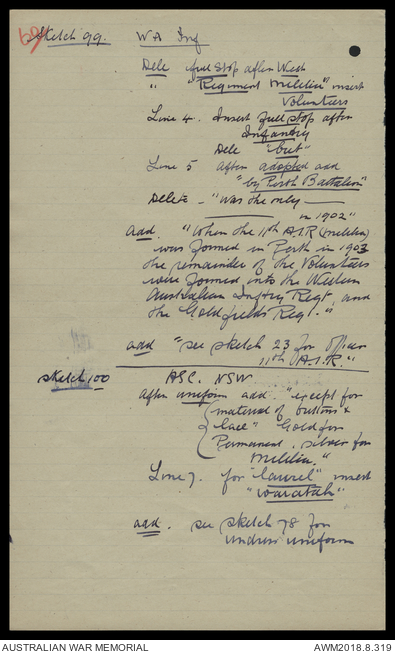 69
Sketch 99. WA Inf
Dele full stop after West
" "Regiment Militia" insert
Volunteers
Line 4. Insert full stop after
Infantry
Dele "but"
Line 5 after adopted add
"by Perth Battalion"
Delete - "was the only ———
——— in 1902"
add. "When the 11th A.I.R (Militia)
was formed in Perth in 1903
the remainder of the Volunteers
were formed into the Western
Australian Infty Regt, and
the Goldfields Regt."
add "see sketch 23 for officer
11th A.I.R."
Sketch 100 ASC. NSW
After uniform add "except for
material of buttons &
lace" Gold for
Permanent, silver for
Militia."
Line 7. for "laurel" insert
"waratah"
add. see sketch 78 for
undress uniform
AUSTRALIAN WAR MEMORIAL AWM2018.8.319